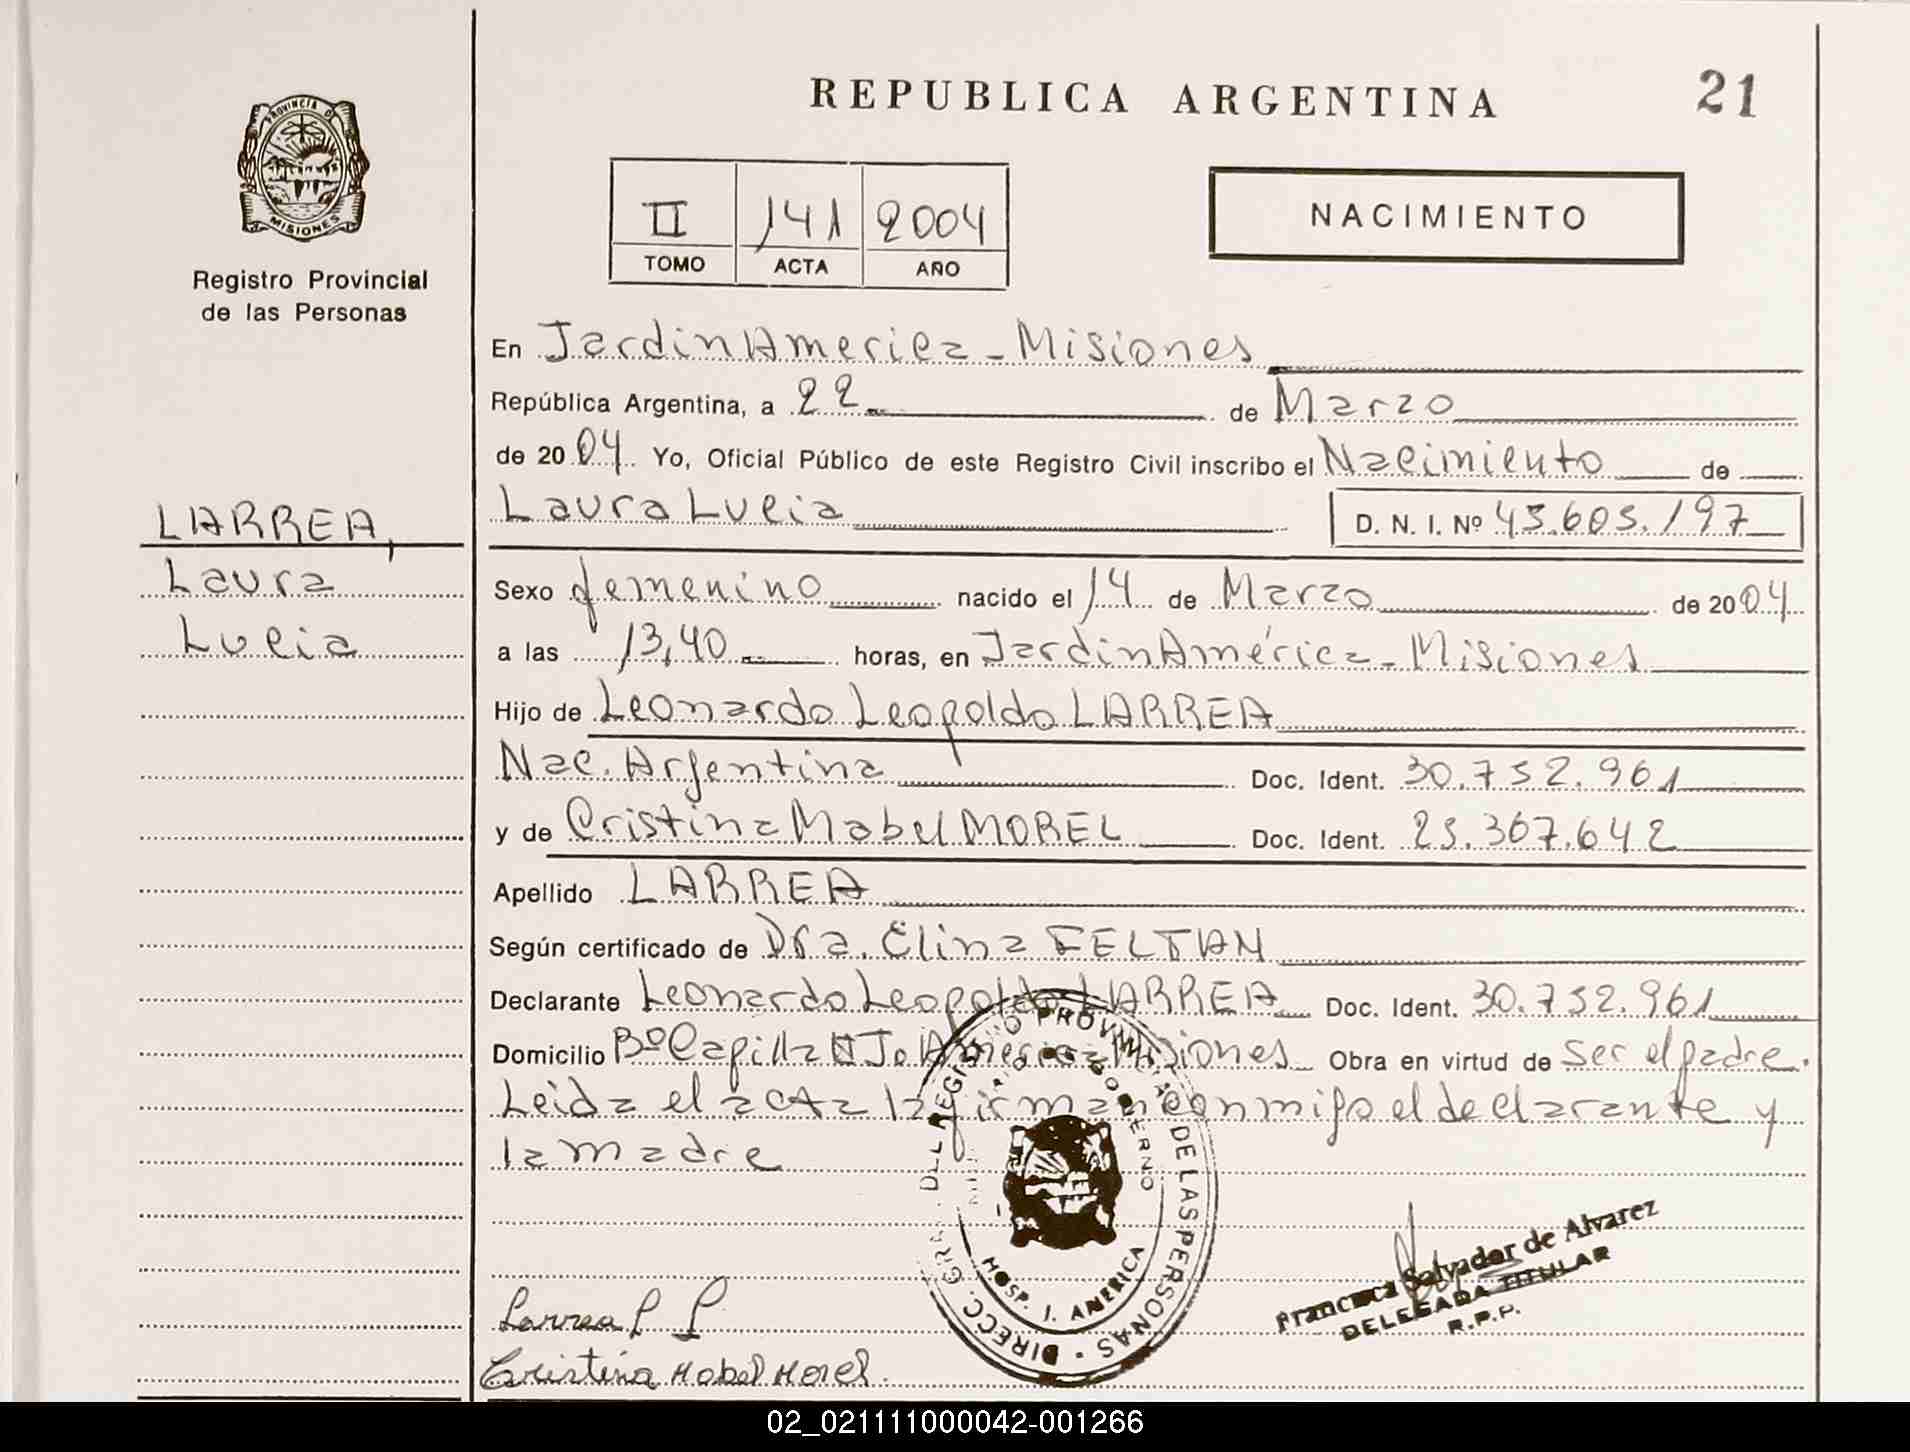 REPUBLICA ARGENTINA
21
PROVINCIA DE
MISIONES
Registro Provincial
de las Personas
II 141 2004
TOMO ACTA AÑO
NACIMIENTO
En Jardin America - Misiones
República Argentina, a 22 de Marzo
de 2004 Yo, Oficial Público de este Registro Civil inscribo el Nacimiento de
Laura Lucia D. N. I. Nº 45.605.197
LARREA,
Laura
Lucia
Sexo femenino nacido el 14 de Marzo de 2004
a las 13,40 horas, en Jardin América - Misiones
Hijo de Leonardo Leopoldo LARREA
Nac. Argentina Doc. Ident. 30.752.961
y de Cristina Mabel MOREL Doc. Ident. 25.367.642
Apellido LARREA
Según certificado de Dra. Elina FELTAN
Declarante Leonardo Leopoldo LARREA Doc. Ident. 30.752.961
Domicilio Bº Capilla J. America Misiones Obra en virtud de ser el padre.
Leida el acta la firman conmigo el declarante y
la madre
DE LAS PERSONAS
GOBIERNO
HOSP. J. AMERICA
DIRECC.
Francisca Salvador de Alvarez
DELEGADA TITULAR
R.P.P.
Larrea L L
Cristina Mabel Morel.
02_021111000042-001266